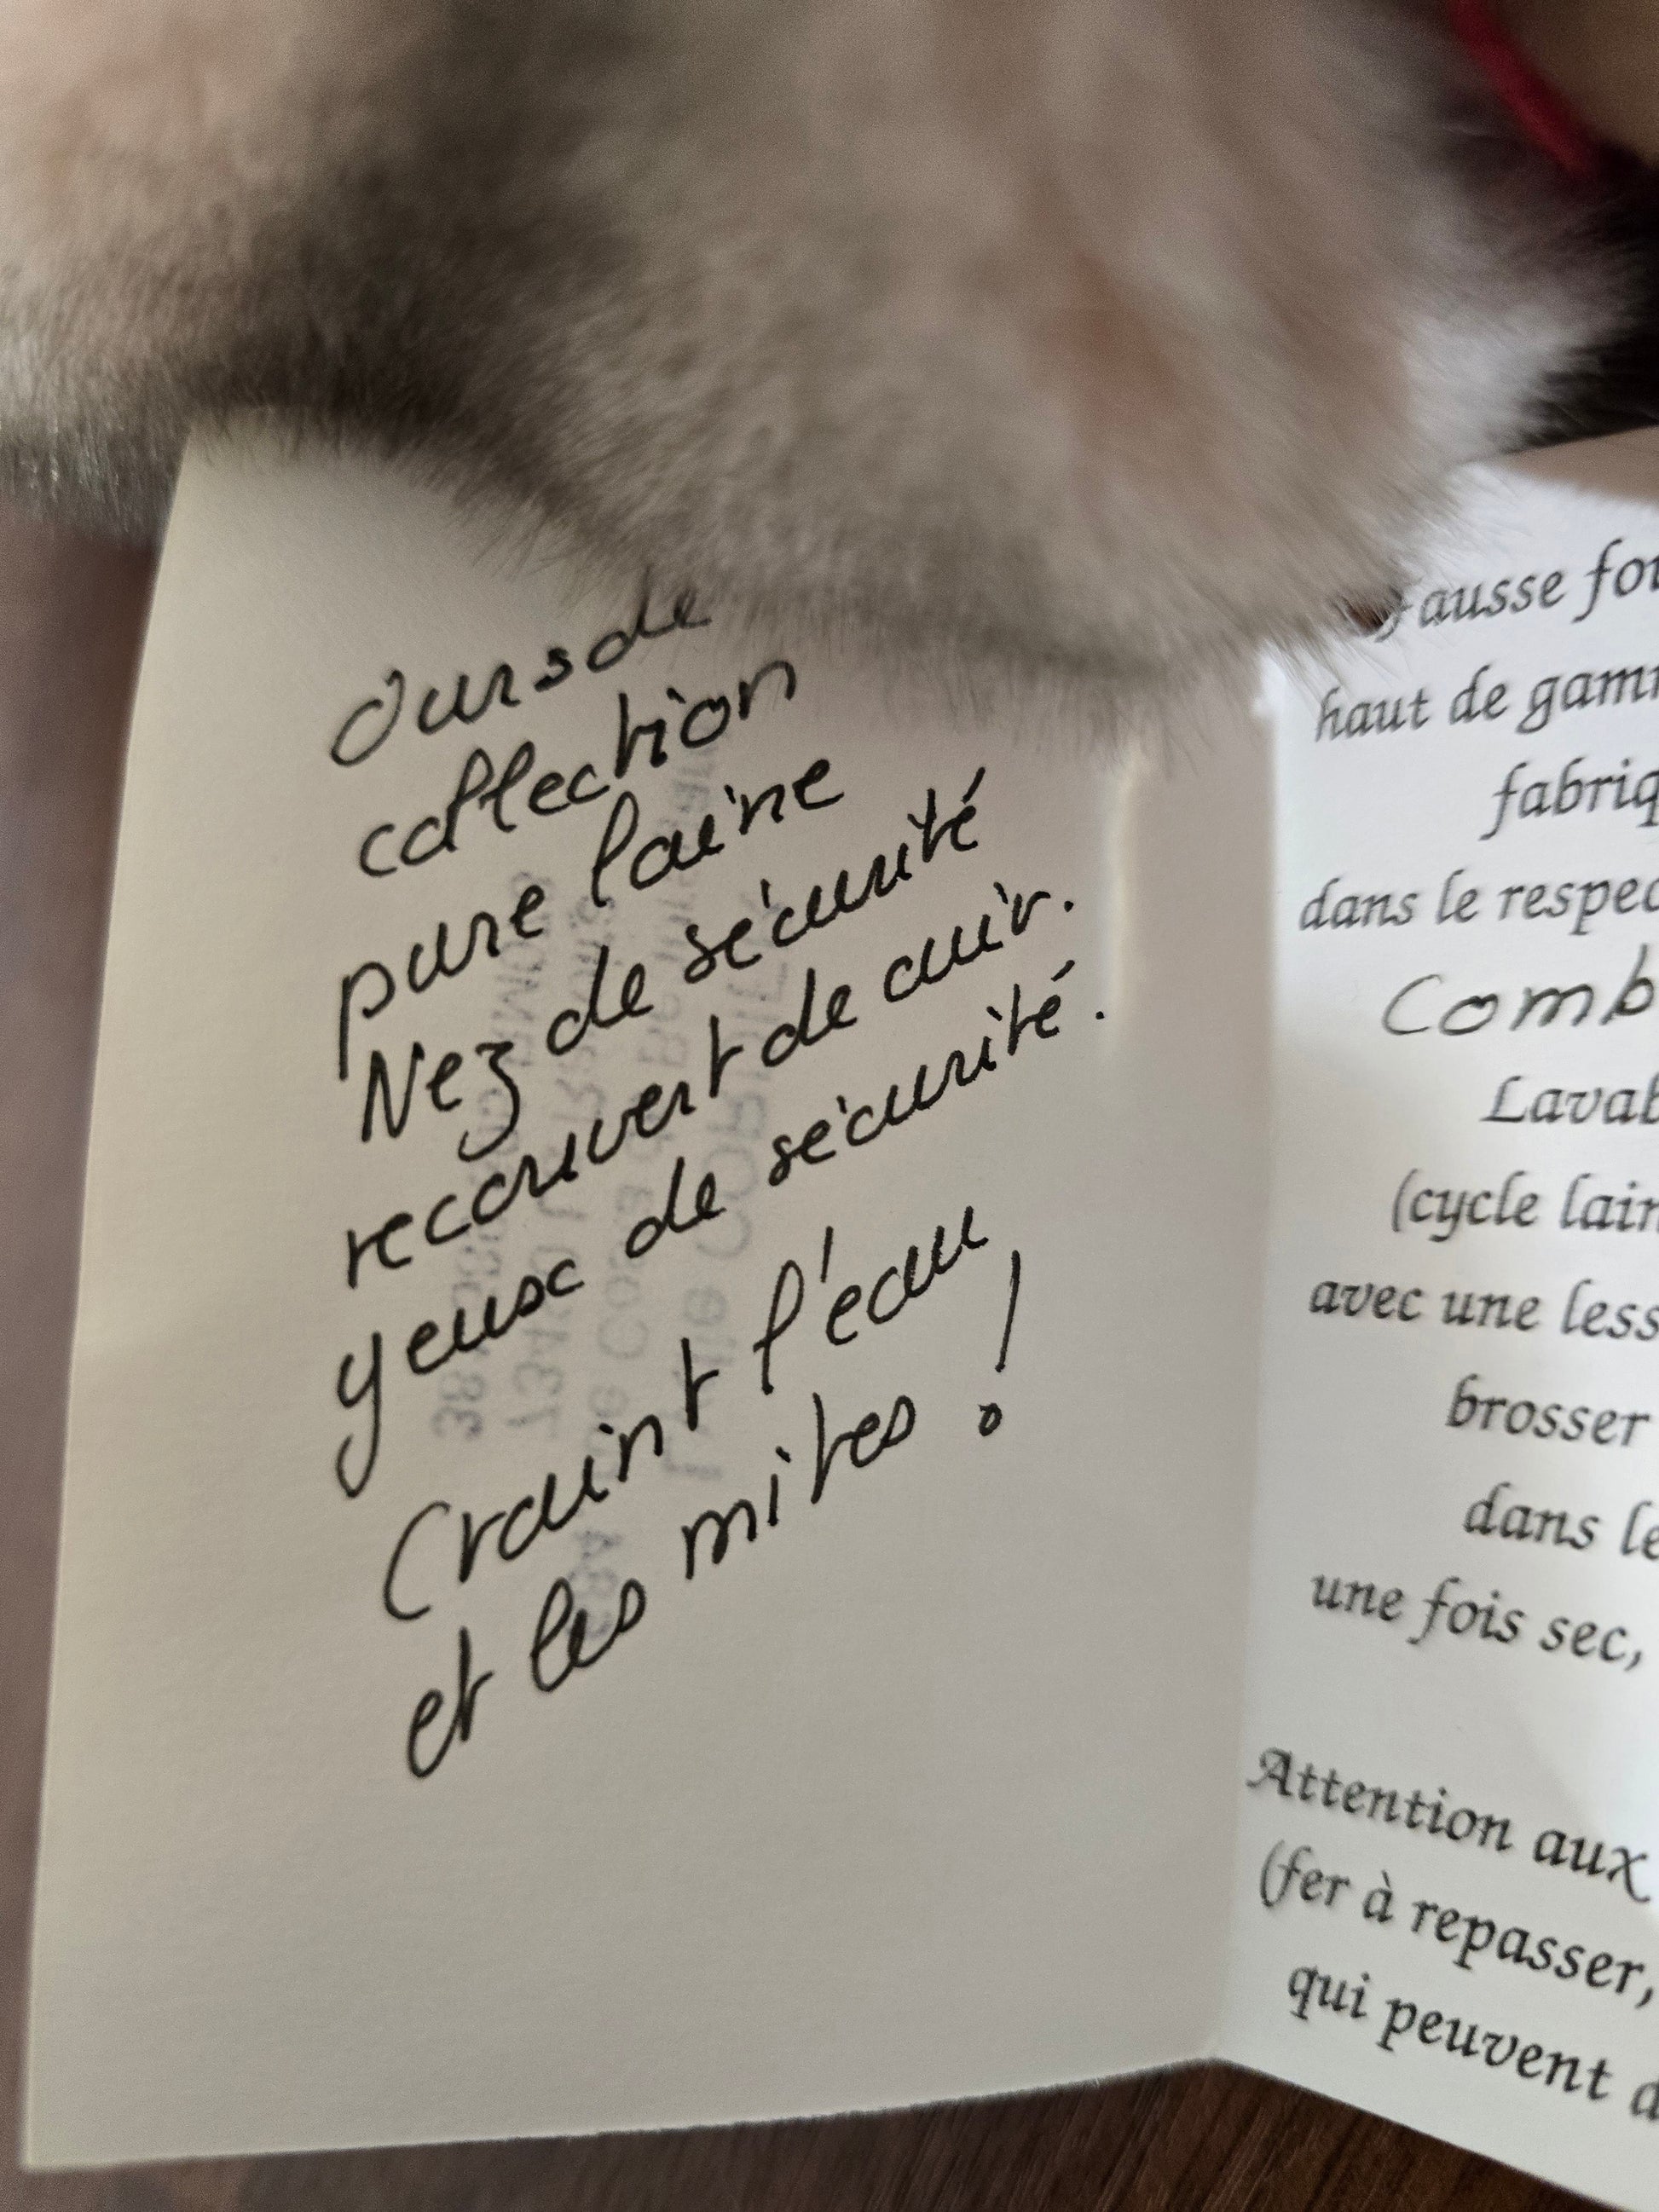 Ours de
collection
pure laine
Nez de sécurité
recouvert de cuir.
yeux de sécurité.
Craint l'eau
et les mites !
fausse fou
haut de gam
fabriq
dans le respec
Comb
Lavab
(cycle lain
avec une less
brosser
dans le
une fois sec,
Attention aux
(fer à repasser,
qui peuvent d